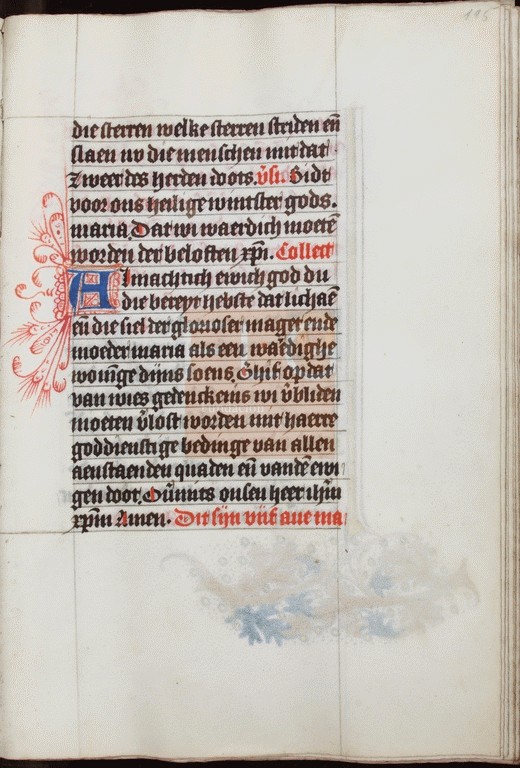 195
die sterren welke sterren striden en̄
slaen nv die menschen mit dat
zweert des herden doots. v̄si. Bidt
voor ons heilige winster gods.
maria. Dat wi waerdich moetē
worden der beloften xp̄i. Collect
Almachtich ewich god du
die bereyt hebste dat lichaē
en̄ die siel der glorioser maget ende
moeder maria als een waērdighe
woninge dijns soens. Ghif op dat
van wies gedenckenis wi v̄bliden
moeten v̄lost worden mit haerre
goddienstige bedinge van allen
aenstaenden quaden en̄ vandē ewi
gen doot. Ouermits onsen heer ihm̄
xp̄m Amen. Dit sijn viif aue ma